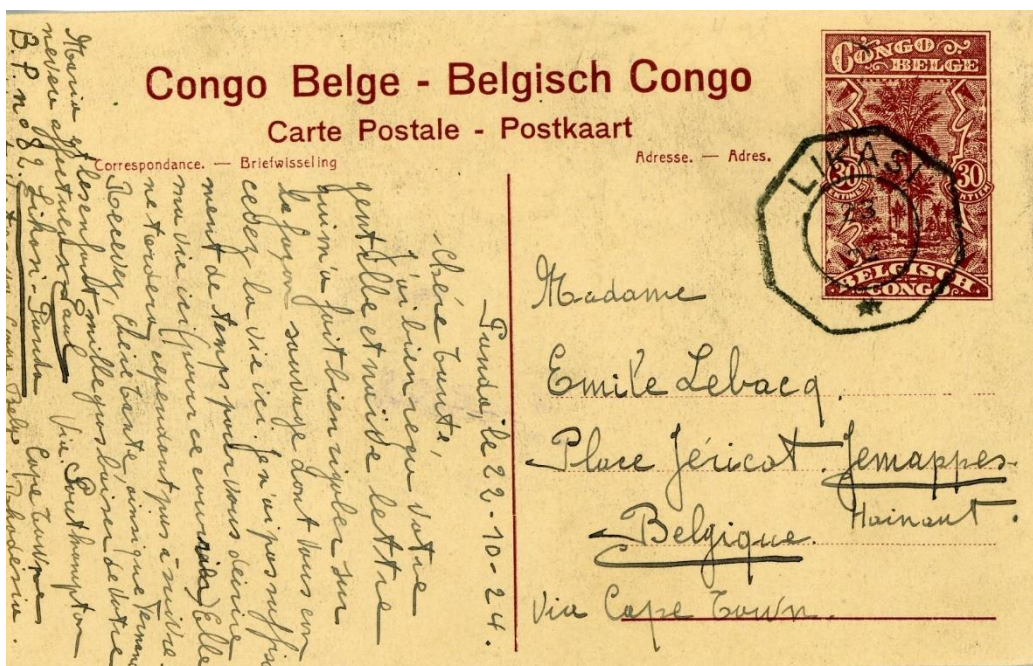 Congo Belge - Belgisch Congo
Carte Postale - Postkaart
Correspondance. — Briefwisseling
Adresse. — Adres.
CONGO
BELGE
30
30
CENTIMES
BELGISCH
CONGO
LIKASI
23
Panda, le 22-10-24.
Chère tante,
J'ai bien reçu votre
gentille et lettre
qui m'a fait bien rigoler sur
la façon sauvage dont vous con
cevez la vie ici. Je n'ai pas suffisa
ment de temps pour vous décrire
ma vie ici (pour ce courrier) Elle
ne tardera cependant pas à suivre.
Recevez, chère tante, ainsi que Fernand
Maria et les enfants mille gros baisers de votre
neveu affectueux Paul
B.P. no 82. Likasi-Panda Via Southampton
Cape Town
Congo Belge Rhodesia.
Madame
Emile Lebacq.
Place Jéricot. Jemappes
Belgique. Hainaut.
Via Cape Town.